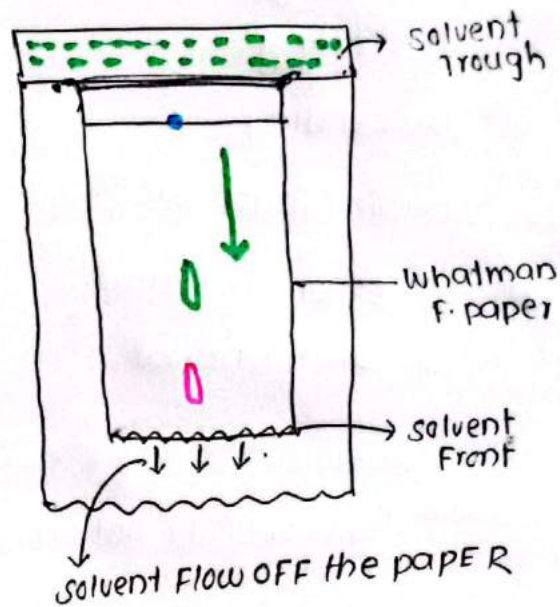 solvent
Trough
Whatman
F. paper
solvent
Front
solvent Flow OFF the papER